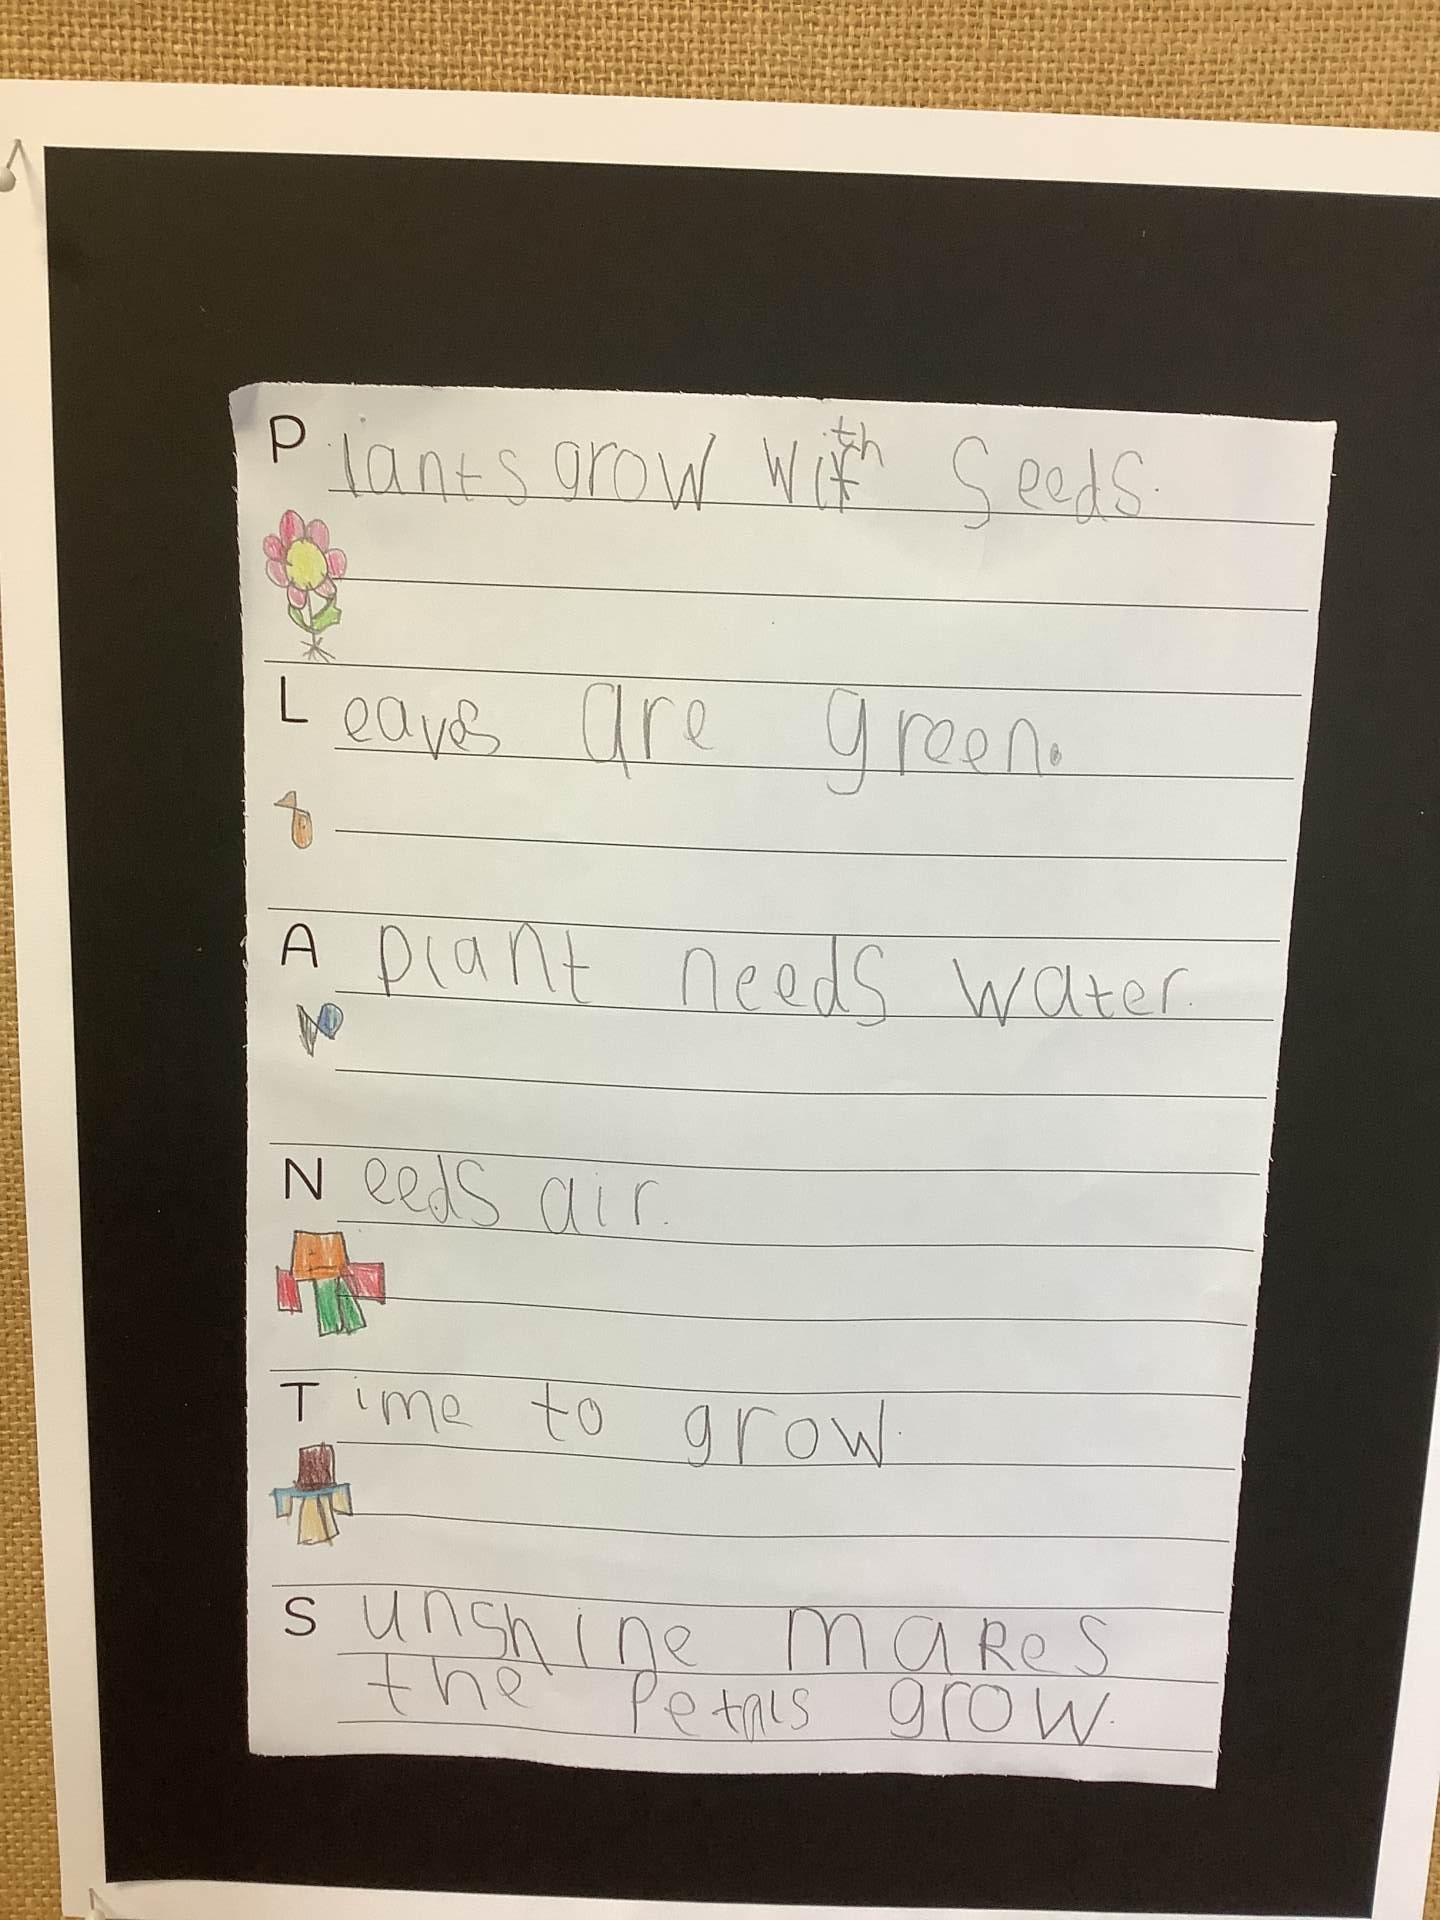 Plants grow with Seeds.
Leaves are green.
A plant needs water.
Needs air.
Time to grow.
Sunshine makes
the Petals grow.